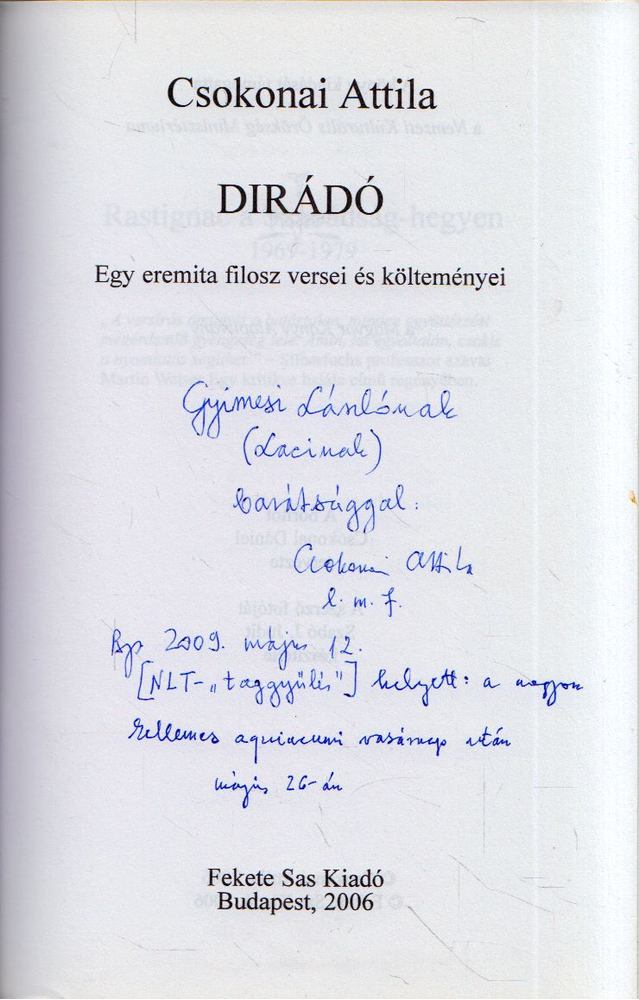 Csokonai Attila
DIRÁDÓ
Egy eremita filosz versei és költeményei
Gyimesi Lászlónak
(Lacinak)
barátsággal:
Csokonai Attila
2009. május 12.
[NLT-„taggyűlés"] helyett: a nagyon
kellemes aquincumi vasárnap után
május 26-án
Fekete Sas Kiadó
Budapest, 2006